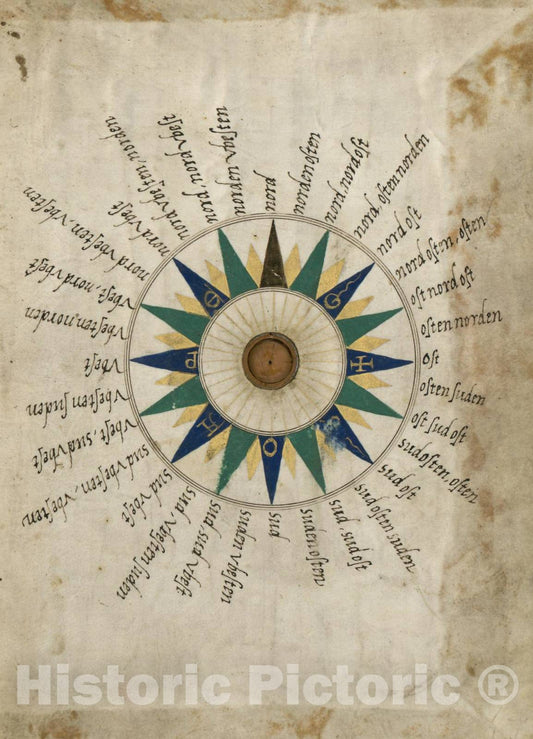 nord
norden osten
nord, nord ost
nord, osten norden
nord ost
nord osten, osten
ost nord ost
osten norden
ost
osten suden
ost sud ost
sud osten, osten
sud ost
sud osten suden
sud sud ost
suden osten
sud
suden vbesten
sud sud vbest
sud vbesten suden
sud vbest
sud vbesten, vbesten
vbest, sud vbest
vbesten suden
vbest
vbesten, norden
vbest, nord vbest
nord vbesten, vbesten
nord vbest
nord vbesten, norden
nord, nord vbest
norden vbesten
G
O
P
Historic Pictoric ®